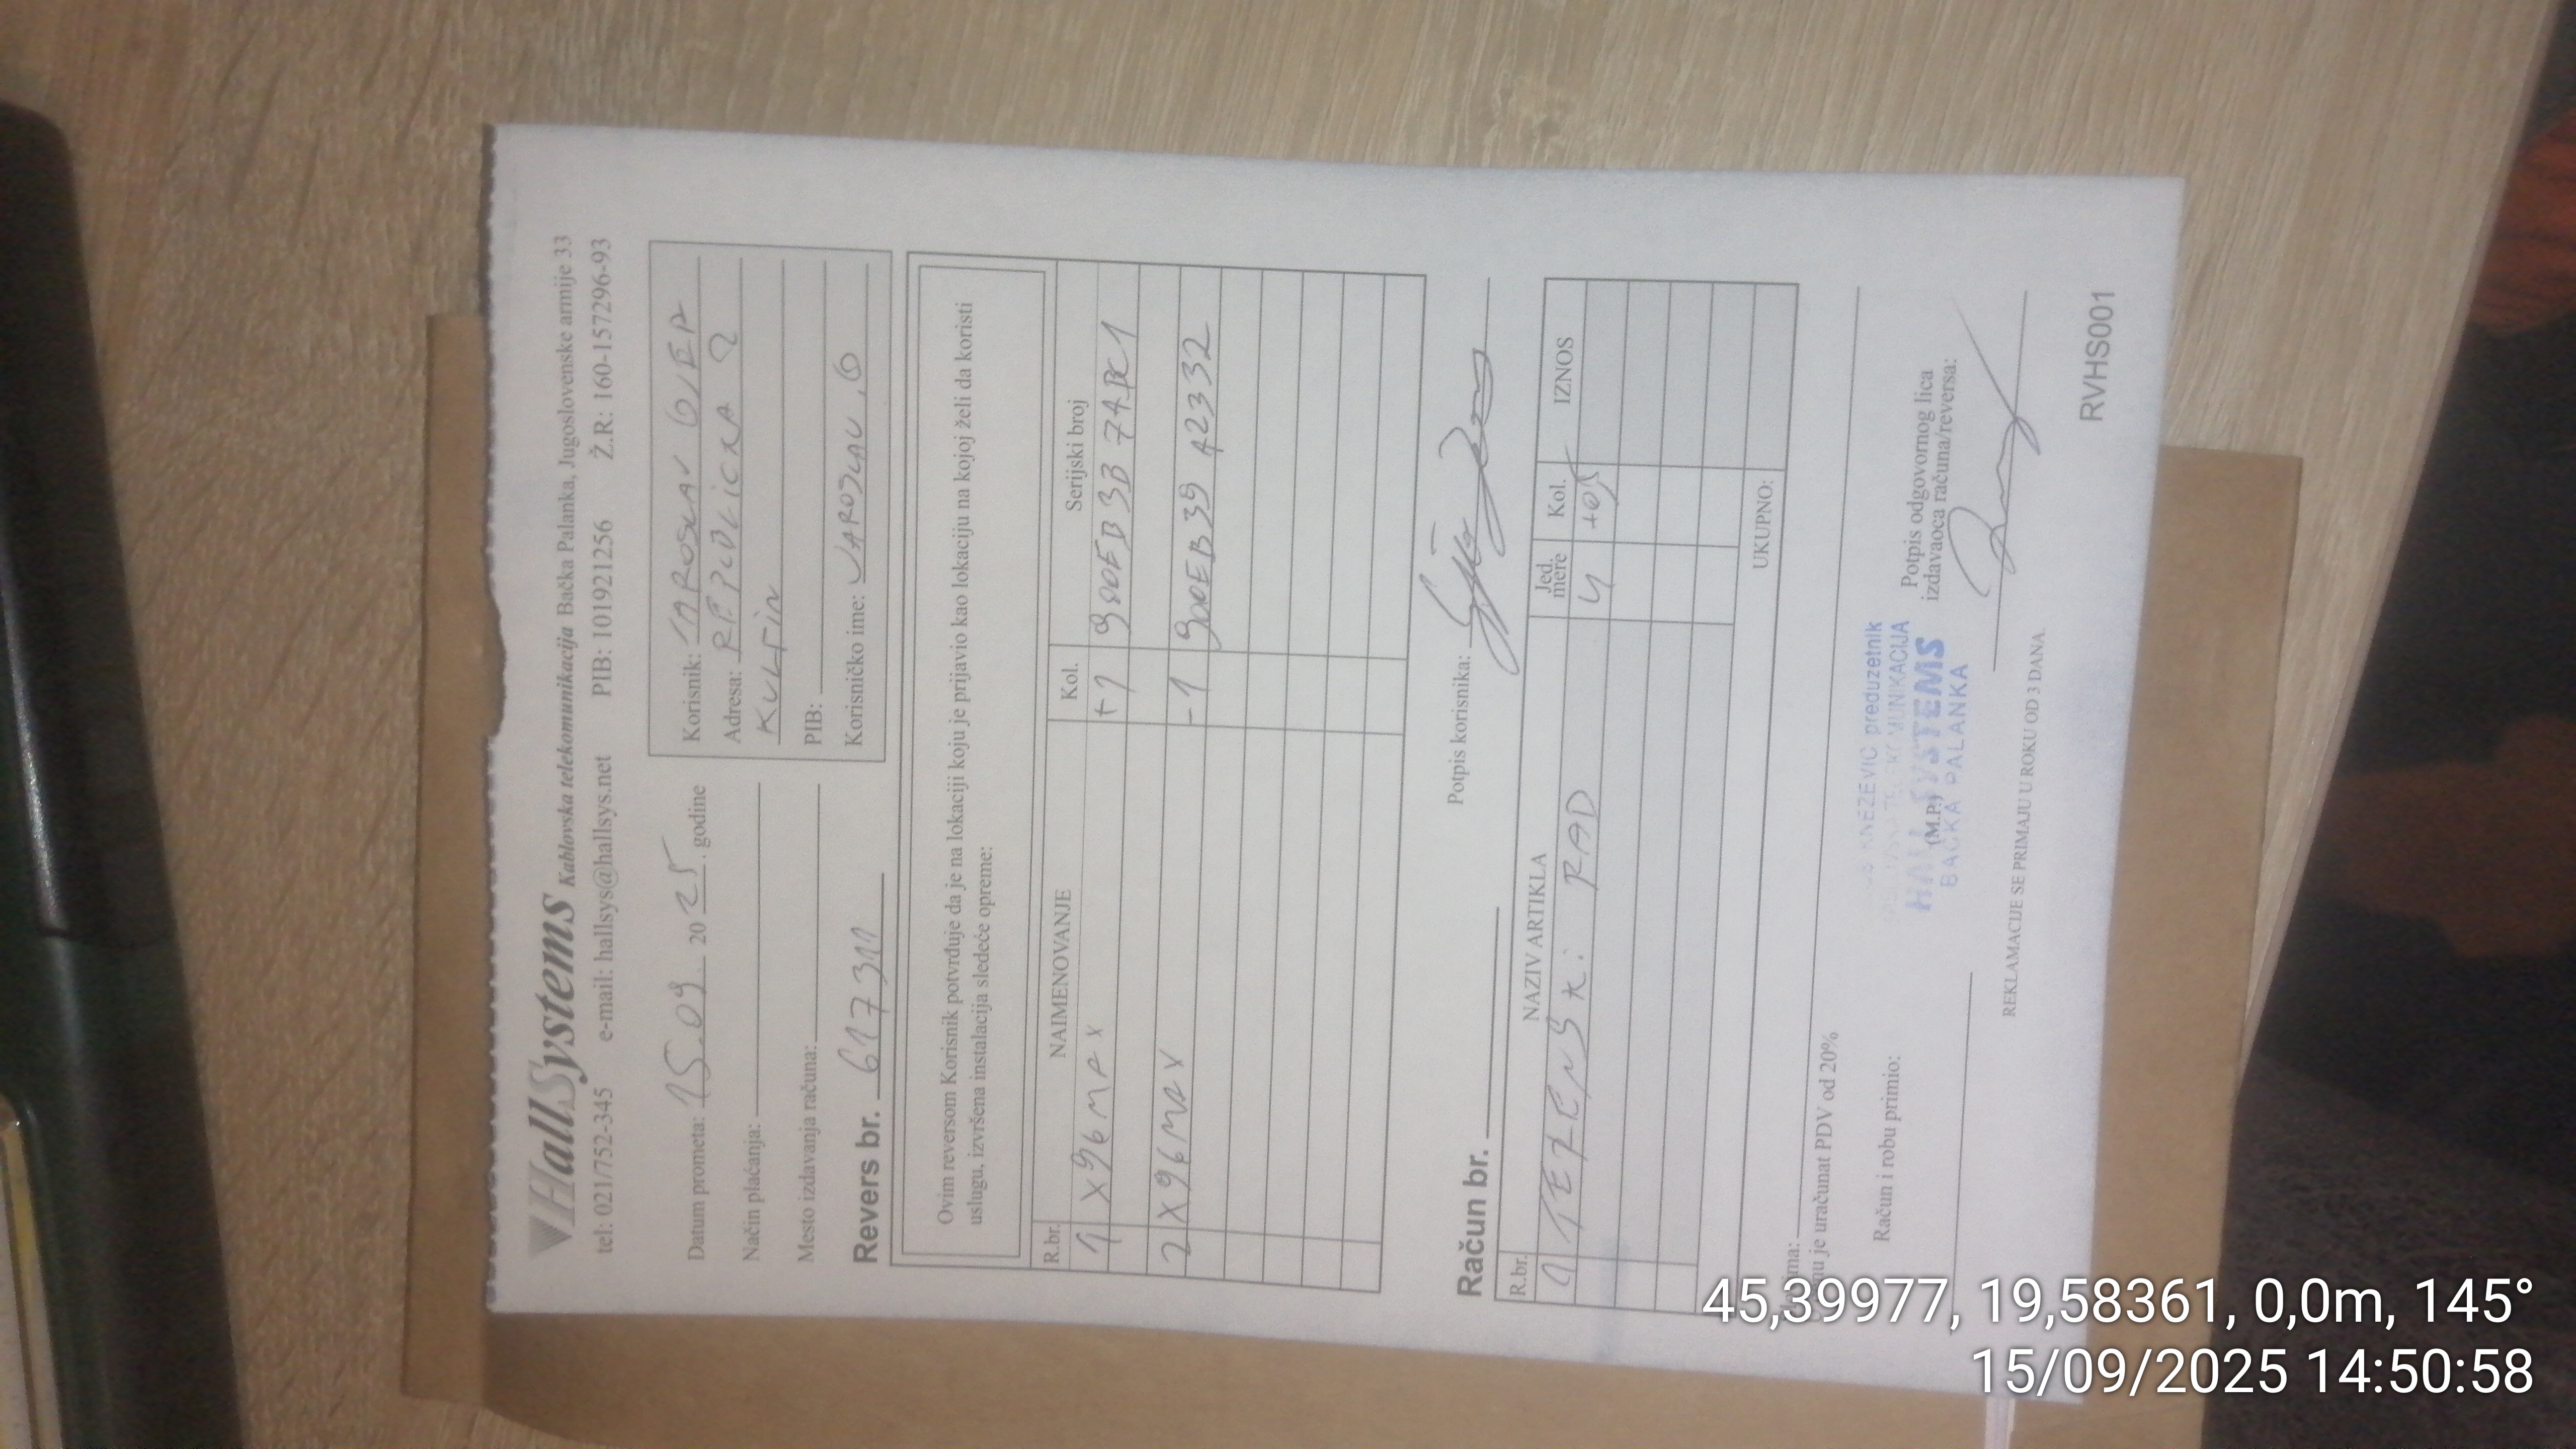 HallSystems Kablovska telekomunikacija Bačka Palanka, Jugoslovenske armije 33
tel: 021/752-345 e-mail: hallsys@hallsys.net PIB: 101921256 Ž.R: 160-157296-93
Datum prometa: 15.09. 2025. godine
Način plaćanja:
Mesto izdavanja računa:
Korisnik: JAROSLAV
Adresa: 2
KULPIN
PIB:
Korisničko ime: JAROSLAV.G
Revers br. 617311
Ovim reversom Korisnik potvrđuje da je na lokaciji koju je prijavio kao lokaciju na kojoj želi da koristi
uslugu, izvršena instalacija sledeće opreme:
R.br. NAIMENOVANJE Kol. Serijski broj
1 X96 MAX +1
2 X96 MAX -1 900EB39 A2332
Potpis korisnika:
Račun br.
R.br. NAZIV ARTIKLA Jed. mere Kol. IZNOS
1 RAD
UKUPNO:
ma:
nu je uračunat PDV od 20%
Račun i robu primio:
KNEZEVIĆ preduzetnik
HALL SYSTEMS
BAČKA PALANKA
(M.P.)
Potpis odgovornog lica
izdavaoca računa/reversa:
REKLAMACIJE SE PRIMAJU U ROKU OD 3 DANA.
RVHS001
45,39977, 19,58361, 0,0m, 145°
15/09/2025 14:50:58